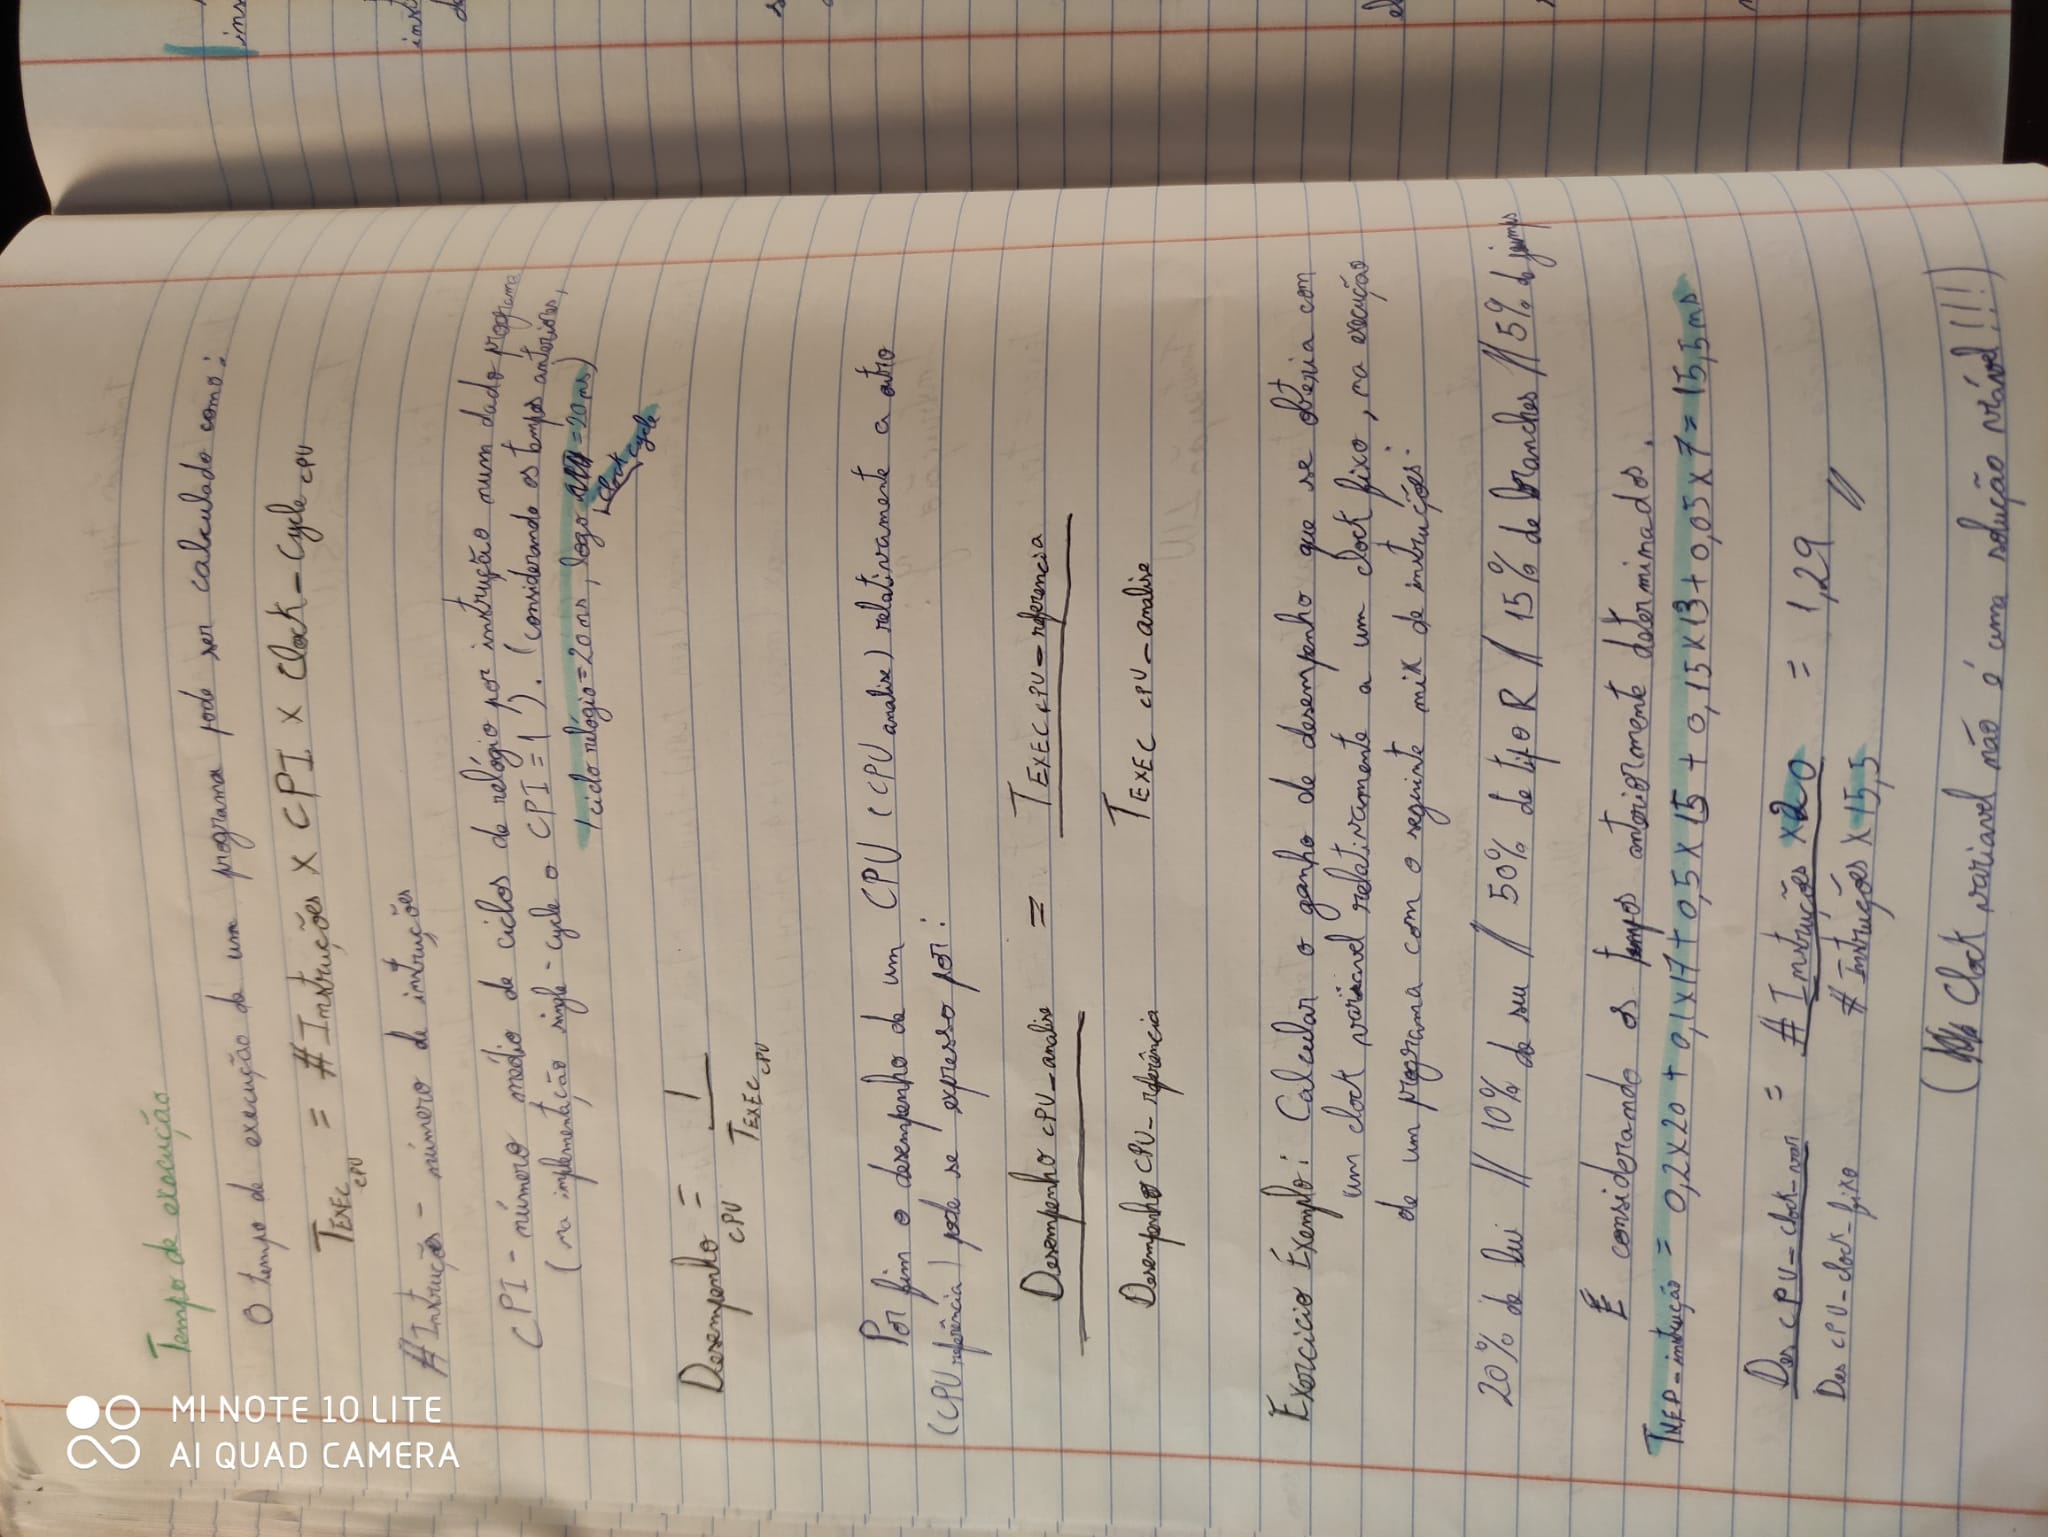 Tempo de execução
O tempo de execução de um programa pode ser calculado como:
TEXEC CPU = #Instruções x CPI x Clock-Cycle CPU
#Instruções - número de instruções
CPI - número médio de ciclos de relógio por instrução num dado programa
(na implementação single-cycle o CPI = 1). (considerando os tempos anteriores,
1 ciclo relógio = 20 ns, logo = 20 ns)
Clock cycle
Desempenho CPU = 1 / TEXEC CPU
Por fim o desempenho de um CPU (CPU analise) relativamente a outro
(CPU referência) pode se expresso por:
Desempenho CPU-analise = TEXEC CPU-referencia
Desempenho CPU-referência TEXEC CPU-analise
Exercicio Exemplo: Calcular o ganho de desempenho que se obteria com
um clock variavel relativamente a um clock fixo, na execução
de um programa com o seguinte mix de instruções:
20% de lw // 10% de sw // 50% de tipo R // 15% de branches // 5% de jumps
E considerando os tempos anteriormente determinados.
-instrução = 0,2x20 + 0,1x17 + 0,5x15 + 0,15x13 + 0,05x7 = 15,5 ns
Des CPU-clock-var = # Instruções x20 = 1,29 //
Des CPU-clock-fixo # Instruções x 15,5
( Clock variavel não é uma solução viável!!!)
MI NOTE 10 LITE
AI QUAD CAMERA
ins
inst
de